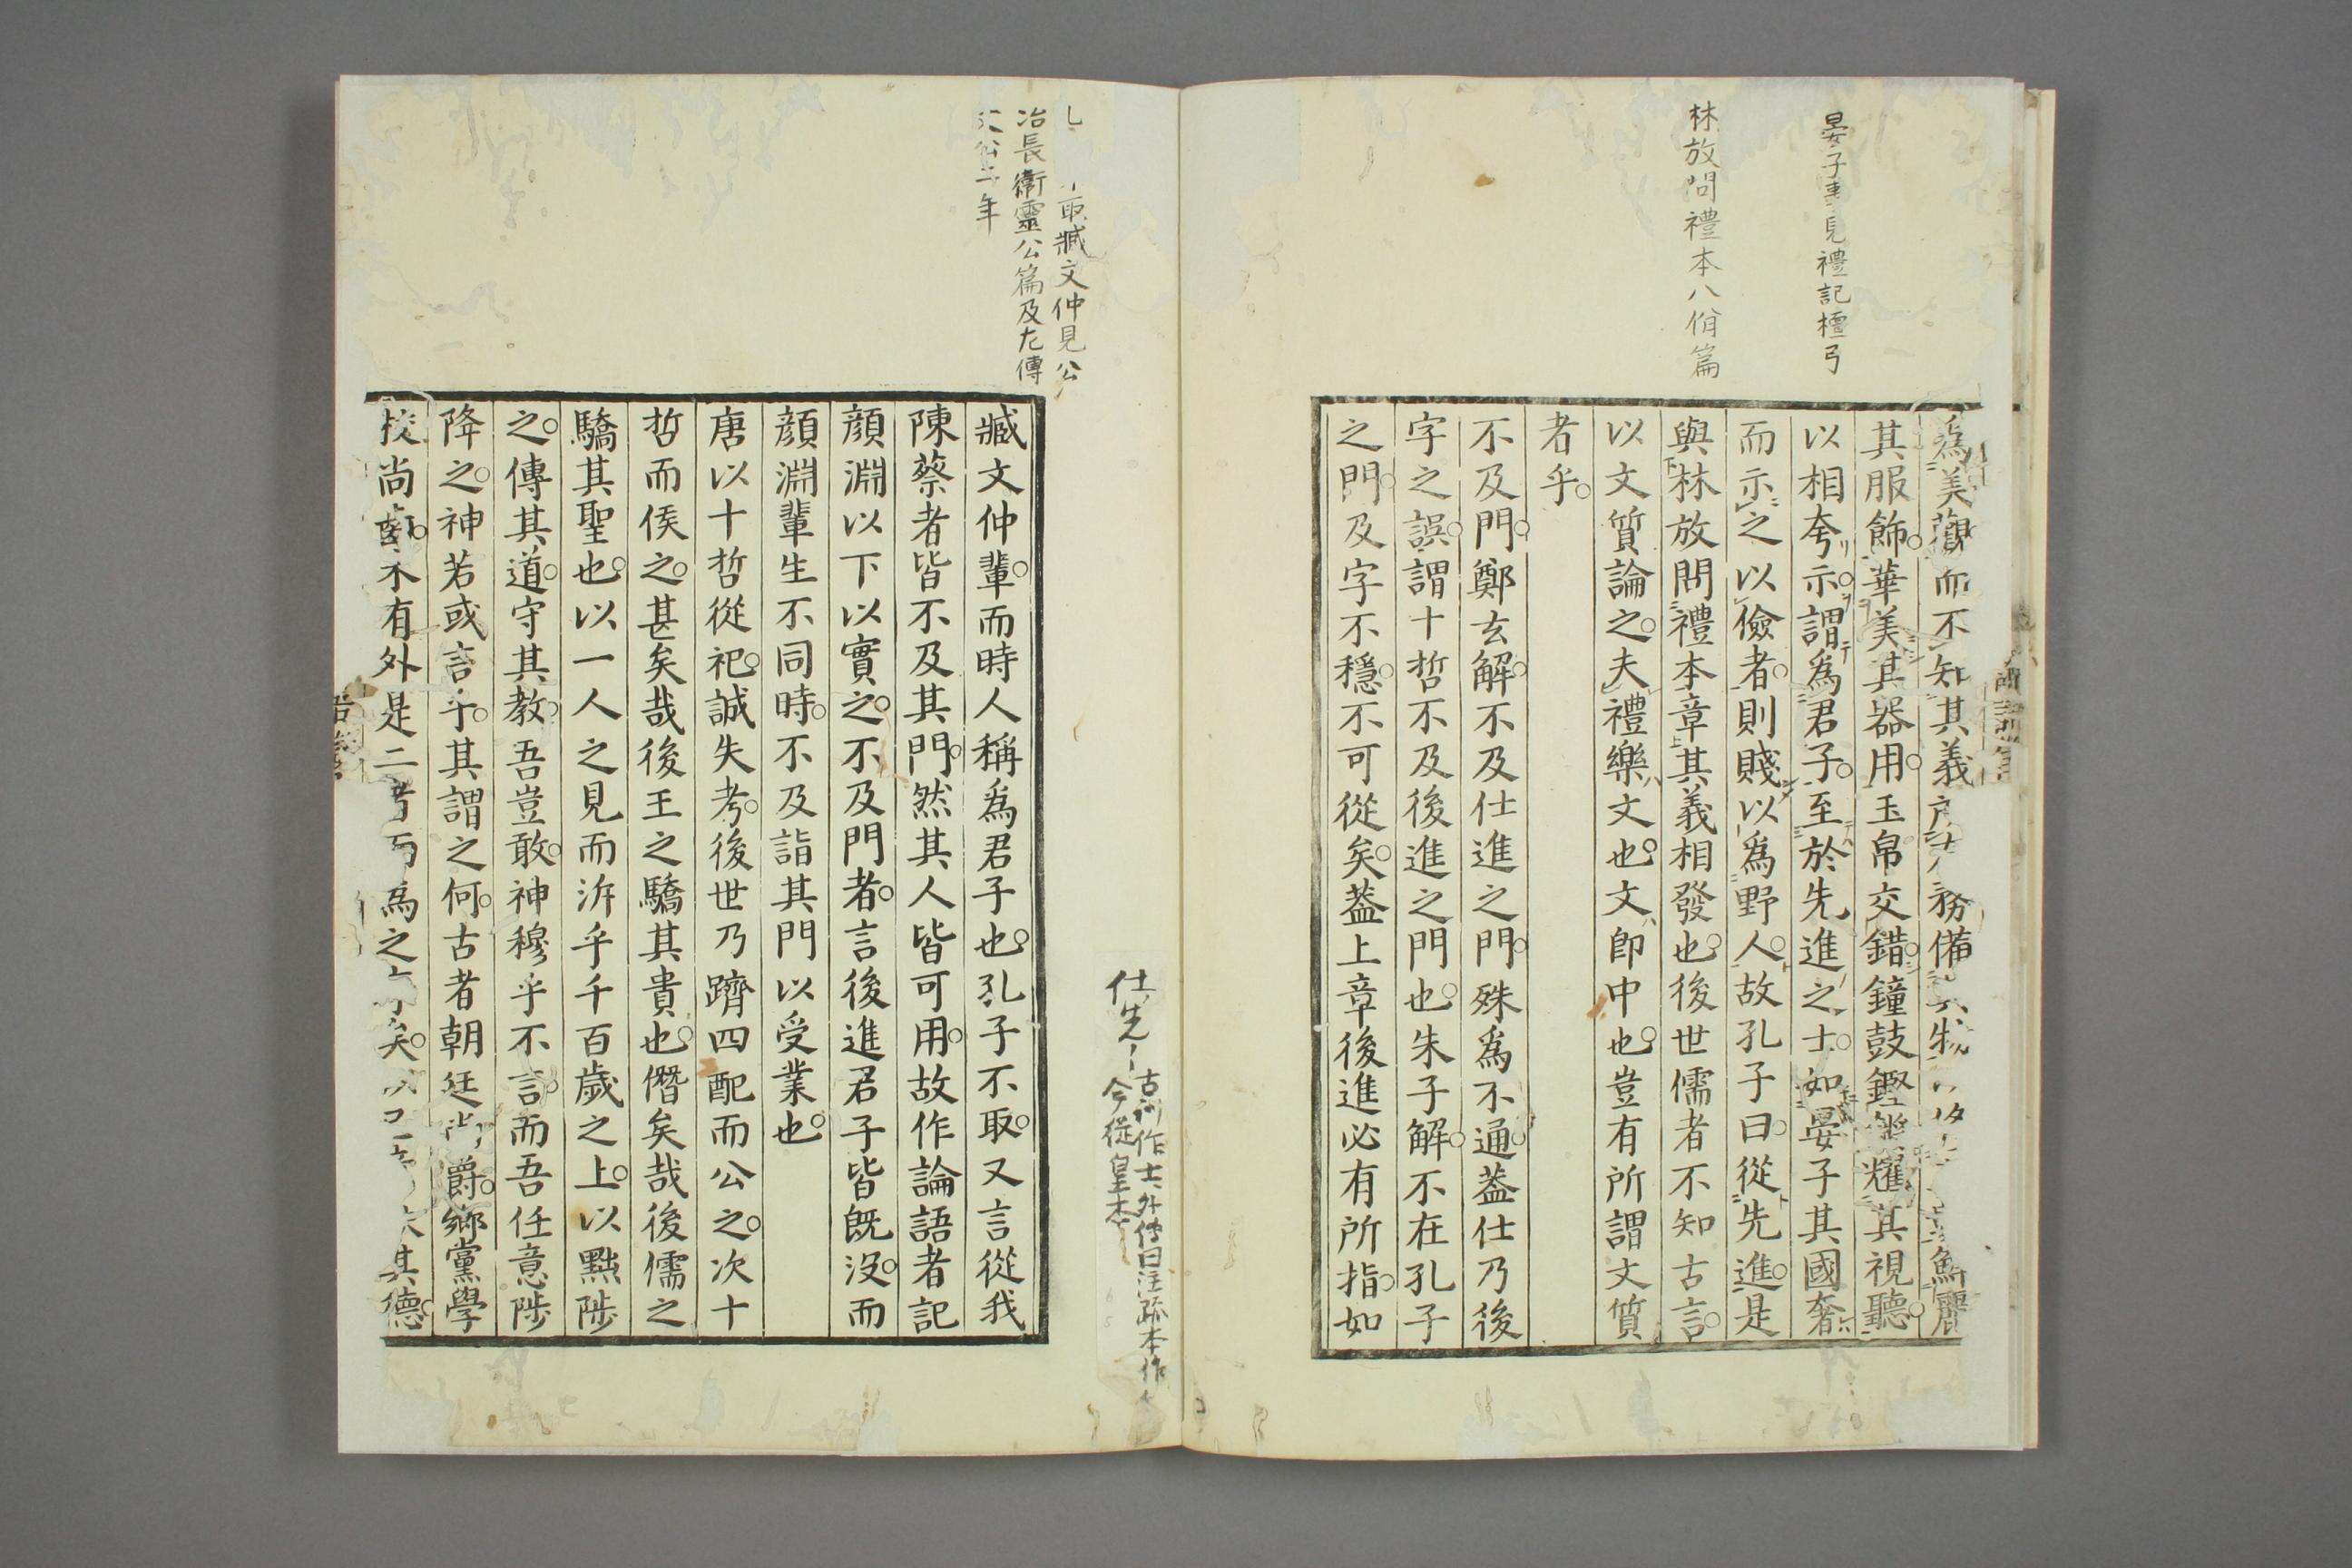 晏子事見禮記檀弓
林放問禮本八佾篇
為美觀而不知其義 務備其物 鮮麗
其服飾華美其器用玉帛交錯鐘鼓鏗鏘耀其視聽
以相夸示謂為君子至於先進之士如晏子其國奢
而示之以儉者則賤以為野人故孔子曰從先進是
與林放問禮本章其義相發也後世儒者不知古言
以文質論之夫禮樂文也文卽中也豈有所謂文質
者乎
不及門鄭玄解不及仕進之門殊為不通蓋仕乃後
字之誤謂十哲不及後進之門也朱子解不在孔子
之門及字不穩不可從矣蓋上章後進必有所指如
仕先
古 作士外傳曰注疏本作
今從皇本
取臧文仲見公
冶長衛靈公篇及左傳
文公二年
臧文仲輩而時人稱為君子也孔子不取又言從我
陳蔡者皆不及其門然其人皆可用故作論語者記
顏淵以下以實之不及門者言後進君子皆既沒而
顏淵輩生不同時不及詣其門以受業也
唐以十哲從祀誠失考後世乃躋四配而公之次十
哲而侯之甚矣哉後王之驕其貴也僭矣哉後儒之
驕其聖也以一人之見而泝乎千百歲之上以黜陟
之傳其道守其教吾豈敢神穆乎不言而吾任意陟
降之神若或言乎其謂之何古者朝廷尚爵鄉黨學
校尚 不有外是二者而為之 矣 其德